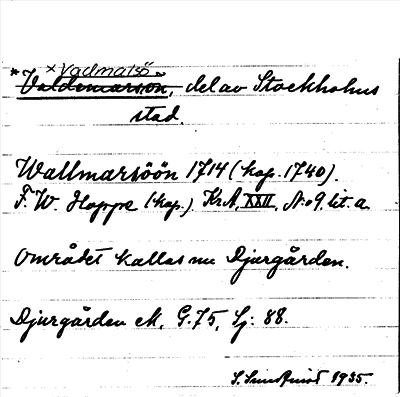 * x Vadmalsö
Valdemarsön, del av Stockholms
stad.
Wallmarsöön 1714 (kop. 1740).
F. W. Hoppe (kop.) Kr.A. XXII, No 9 lit. a
Området kallas nu Djurgården.
Djurgården M, G. 75, Sj: 88.
S. Sundqvist 1935.